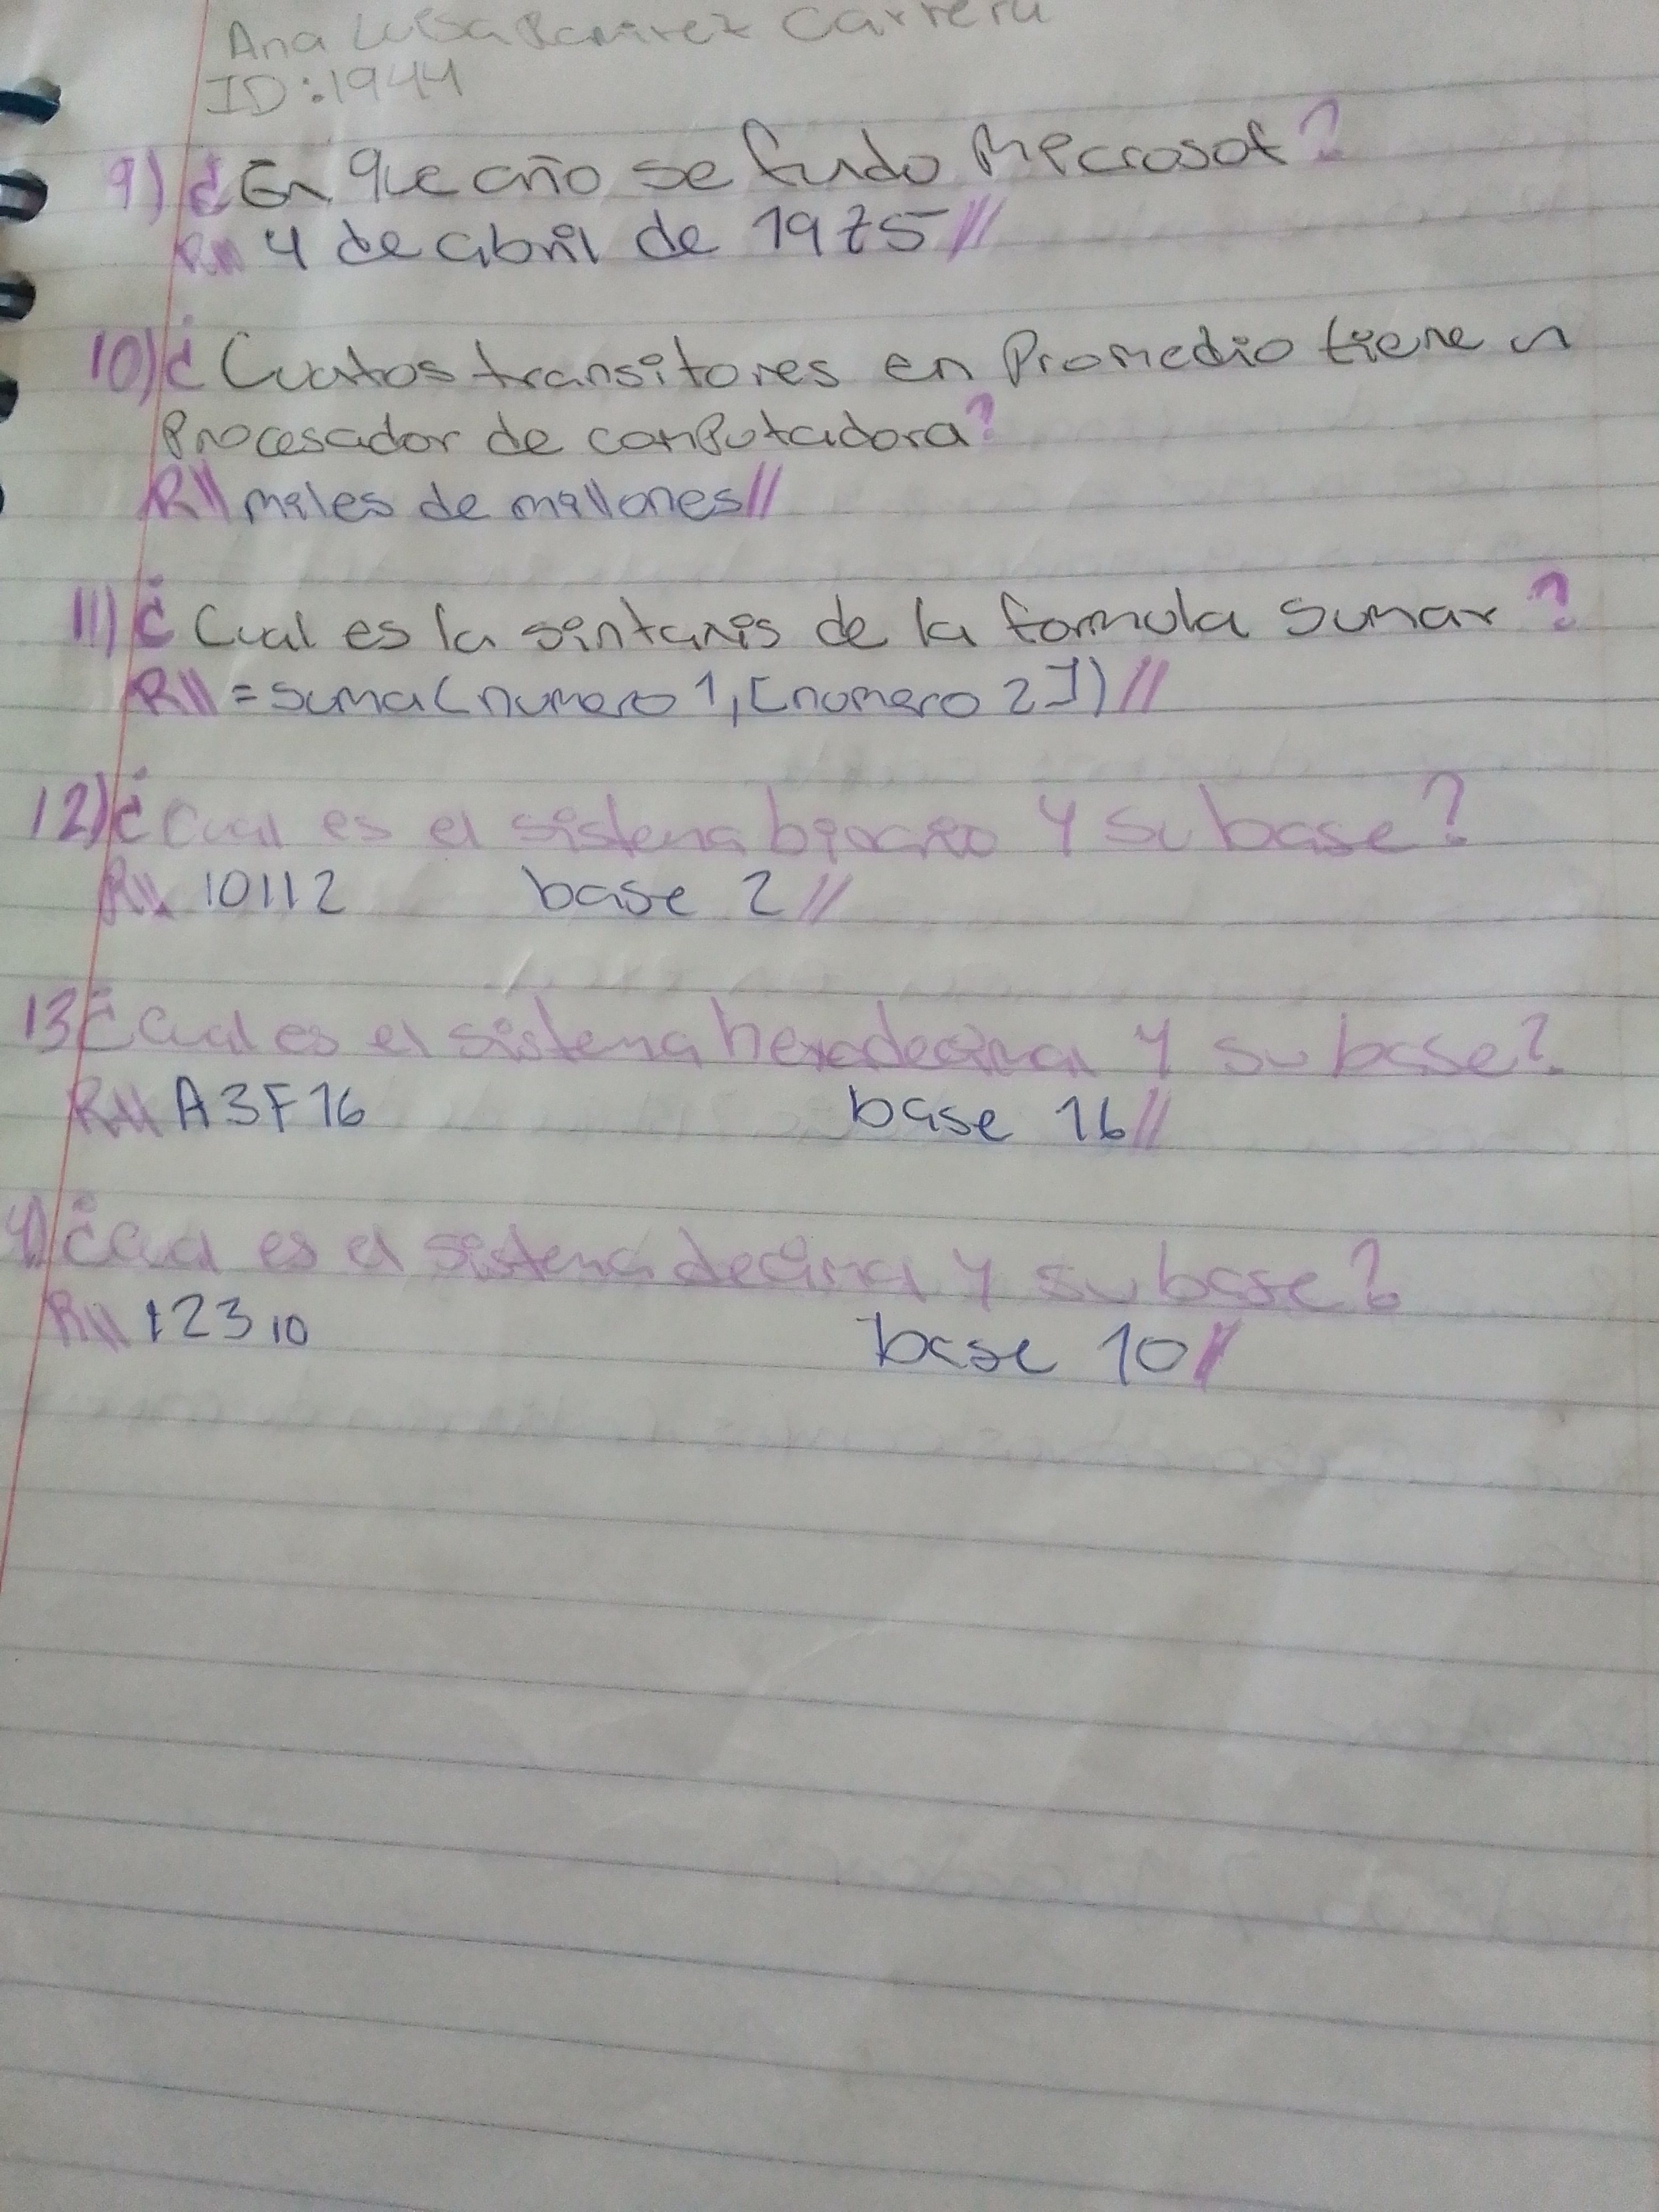 Ana Luisa Ramirez Carrera
ID:1944
9) ¿En que año se fundo Mecrosot?
R// 4 de abril de 1975//
10) ¿Cuatos transitores en Promedio tiene un
Procesador de computadora?
R// miles de millones//
11) ¿Cual es la sintaxis de la formula sumar?
R// =suma(numero 1,[numero 2])//
12) ¿Cual es el sistema binario y su base?
R// 10112 base 2//
13 ¿Cual es el sistema hexadecimal y su base?
R// A3F16 base 16//
4) ¿Cual es el sistema decimal y su base?
R// 123 10 base 10//